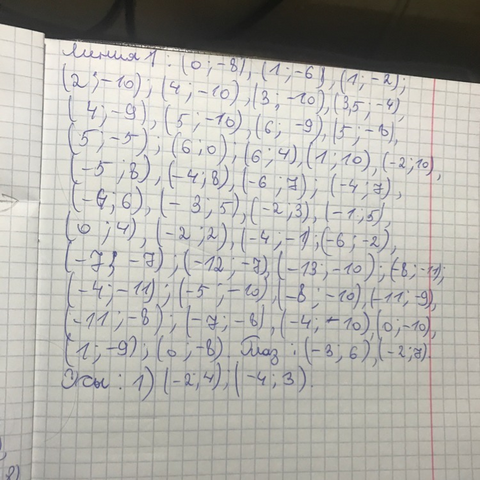 Линия 1 : (0 ; -8), (1 ; -6), (1 ; -2);
(2 ; -10), (4 ; -10), (3 ; -10), (3,5 ; -4),
(4 ; -9), (5 ; -10), (6 ; -9), (5 ; -8),
(5 ; -5), (6 ; 0), (6 ; 4), (1 ; 10), (-2 ; 10),
(-5 ; 8), (-4 ; 8), (-6 ; 7); (-4 ; 7),
(-6 ; 6), (-3 ; 5), (-2 ; 3), (-1 ; 5),
(0 ; 4), (-2 ; 2), (-4 ; -1); (-6 ; -2),
(-7 ; -7); (-12 ; -7), (-13 ; -10); (-8 ; -11);
(-4 ; -11); (-5 ; -10), (-8 ; -10), (-11 ; -9),
(-11 ; -8); (-7 ; -8), (-4 ; -10), (0 ; -10),
(1 ; -9); (0 ; -8). Глаз : (-3 ; 6), (-2 ; 7).
: 1) (-2 ; 4), (-4 ; 3).